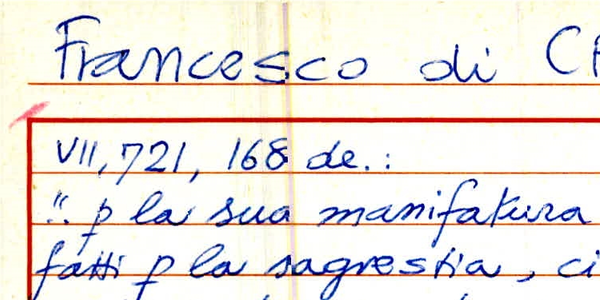 Francesco di
VII, 721, 168 de.:
". p la sua manifatura
fatti p la sagrestia, ci